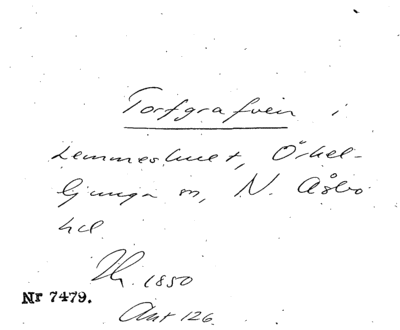 Torfgrafven i
Lemmeshult, Örkel-
ljunga sn, N. Åsbo
hd
Th. 1850
Nr 7479.
Ant 126.